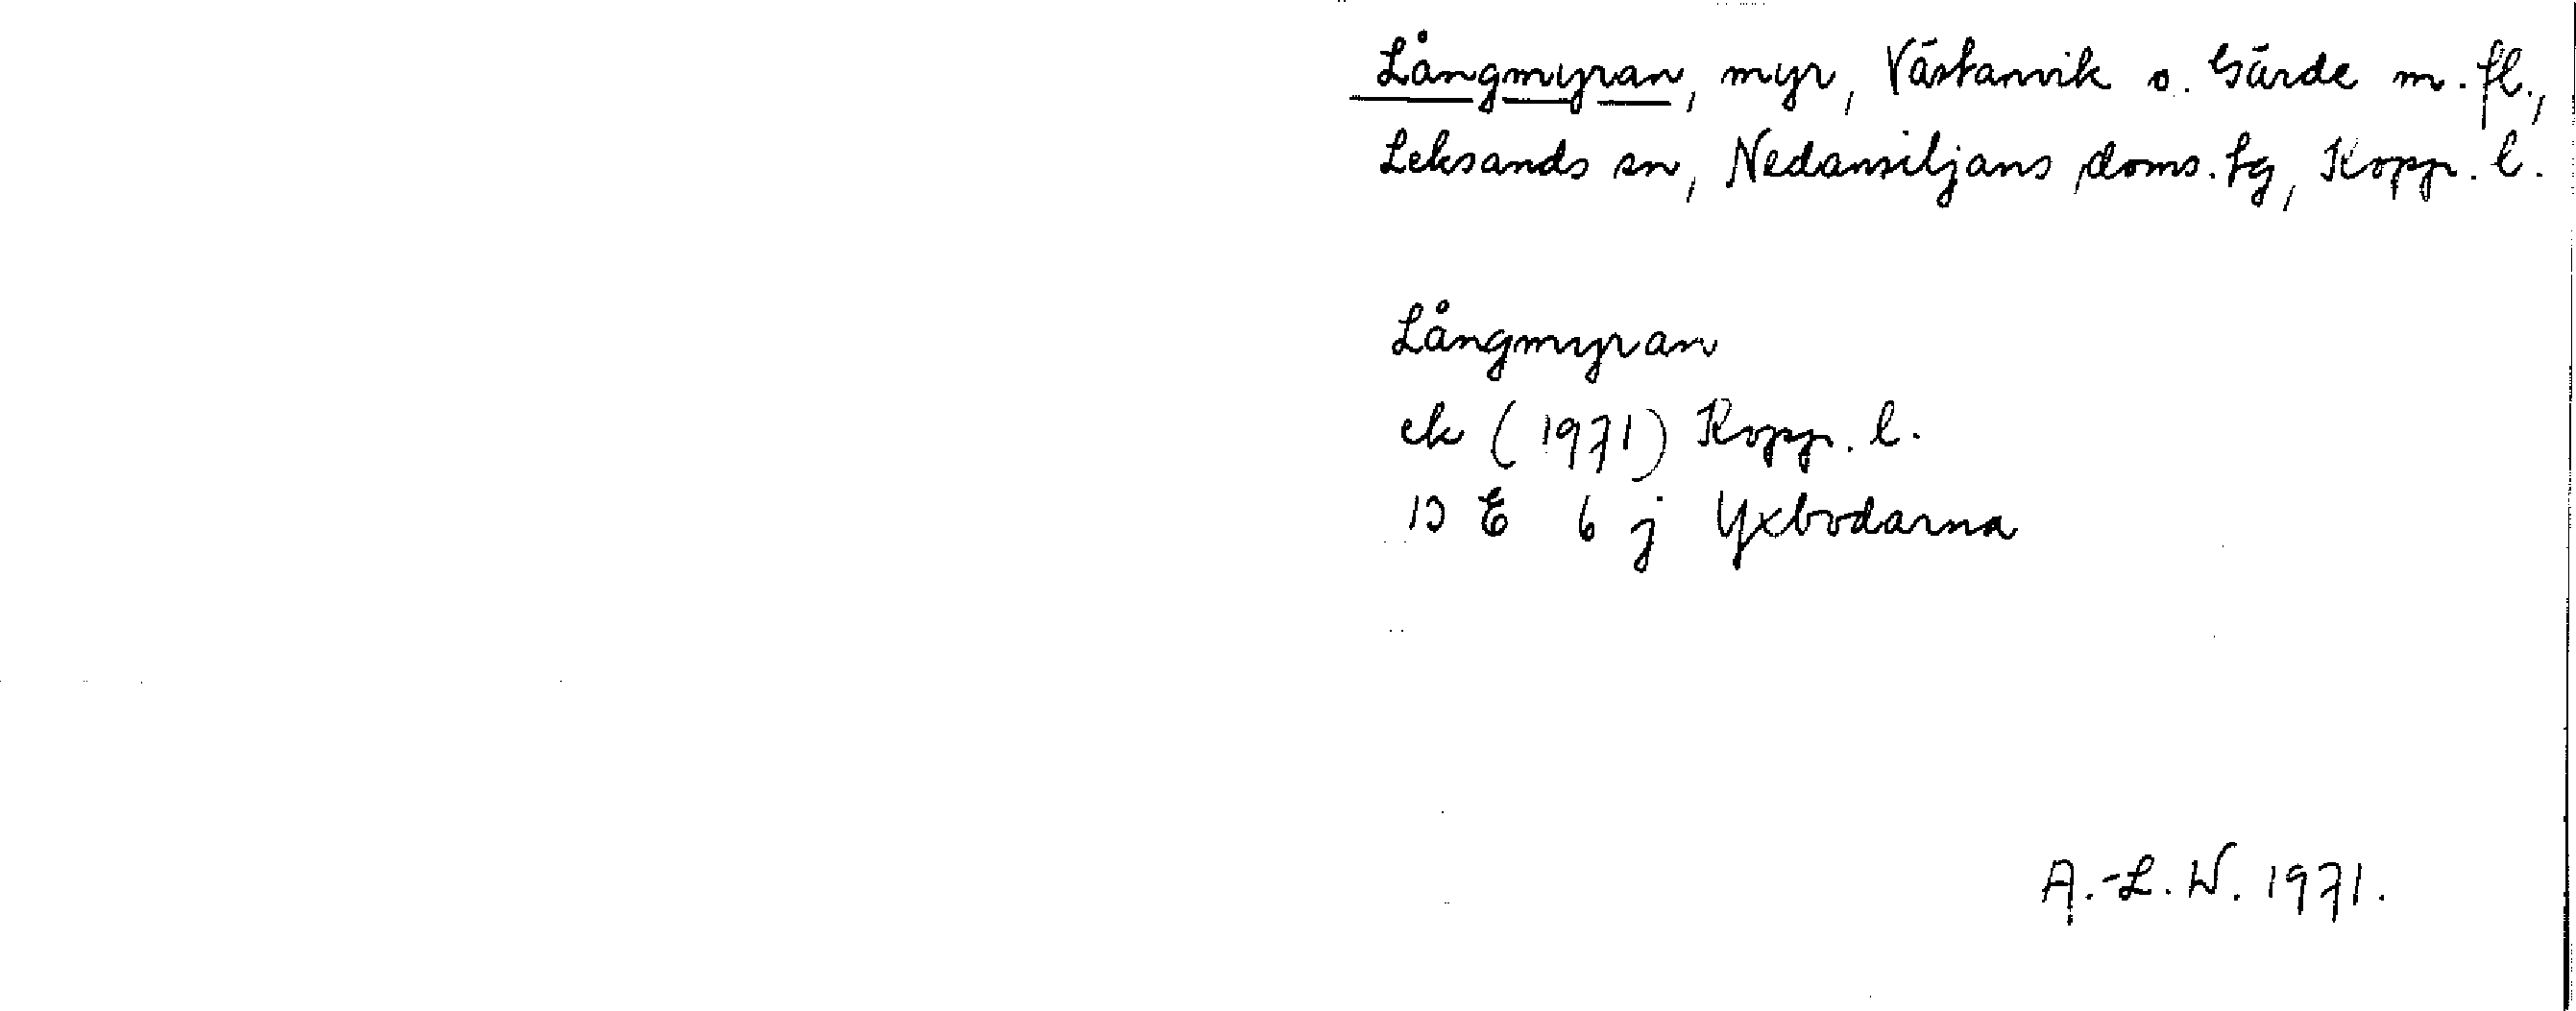 Långmyran, myr, Västanvik o. Gärde m. fl.,
Leksands sn, Nedansiljans doms. tg, Kopp. l.
Långmyran
ek (1971) Kopp. l.
13 E 6 j Yxbodarna
A.-L. W. 1971.